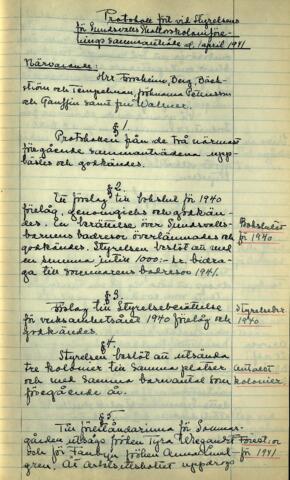 Protokoll fört vid Styrelsens
för Sundsvalls Skollovskoloniföre-
nings sammanträde d. 1 april 1941
Närvarande:
Hrr Forsheim, Berg, Bäck-
ström och Tempelman, fröknarna Petersson
och Gauffin samt fru Wallner.
§ 1
Protokollen från de två närmast
föregående sammanträdena upp-
lästes och godkändes.
§ 2.
Till förslag till bokslut för 1940
förelåg, genomgicks och godkän-
des. En berättelse över Sundsvalls-
barnens badresor överlämnades och
godkändes. Styrelsen beslöt att med
en summa intill 1000:- kr bidra-
ga till sommarens badresor 1941.
Bokslutet
för 1940
§ 3.
Förslag till Styrelseberättelse
för verksamhetsåret 1940 förelåg och
godkändes.
Styrelseber.
1940
§ 4
Styrelsen beslöt att utsända
tre kolonier till samma platser
och med samma barnantal som
föregående år.
Antalet
kolonier
§ 5
Till föreståndarinna för Sommar-
gården utsågs fröken Tyra Wiegandt
och för Fanbyn fröken Anna Lund-
gren. Att arbetsutskottet uppdrogs
Förest:or
för 1941